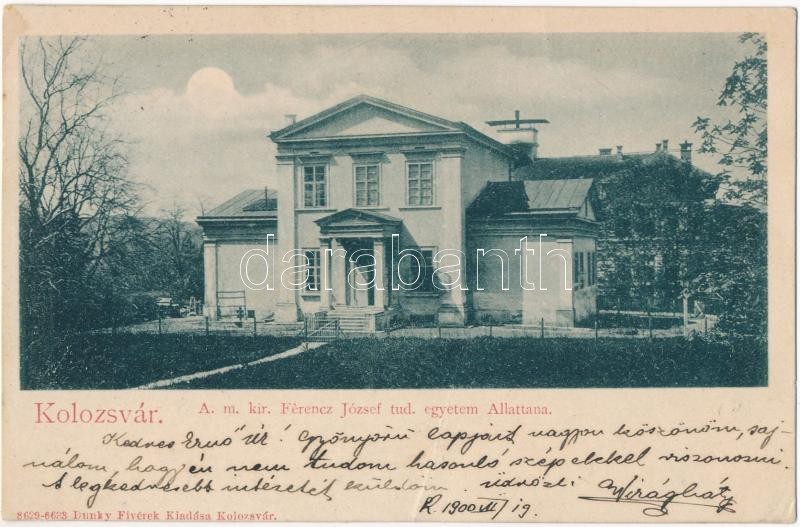 darabanth
Kolozsvár.
A. m. kir. Fèrencz József tud. egyetem Allattana.
Kedves Ernő Úr! Gyönyörű lapjait nagyon köszönöm, saj-
nálom, hogy én nem tudom hasonló szépekkel viszonozni.
A legkedvesebb intézetét küldöm üdvözli
K. 1900 19.
8629-6633 Dunky Fivérek Kiadása Kolozsvár.